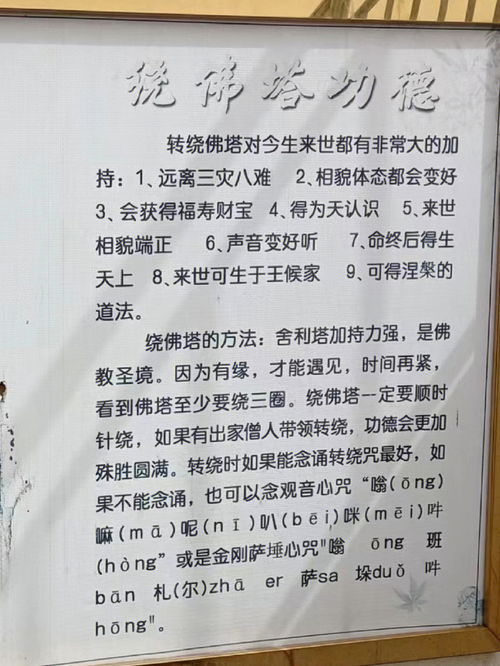 绕佛塔功德
转绕佛塔对今生来世都有非常大的加
持：1、远离三灾八难 2、相貌体态都会变好
3、会获得福寿财宝 4、得为天认识 5、来世
相貌端正 6、声音变好听 7、命终后得生
天上 8、来世可生于王候家 9、可得涅槃的
道法。
绕佛塔的方法：舍利塔加持力强，是佛
教圣境。因为有缘，才能遇见，时间再紧，
看到佛塔至少要绕三圈。绕佛塔--定要顺时
针绕，如果有出家僧人带领转绕，功德会更加
殊胜圆满。转绕时如果能念诵转绕咒最好，如
果不能念诵，也可以念观音心咒“嗡(ōng)
嘛(mā)呢(nī)叭(bēi)咪(mēi)吽
(hòng”或是金刚萨埵心咒"嗡 ōng 班
bān 札(尔)zhā er 萨sa 垛duǒ 吽
hōng"。